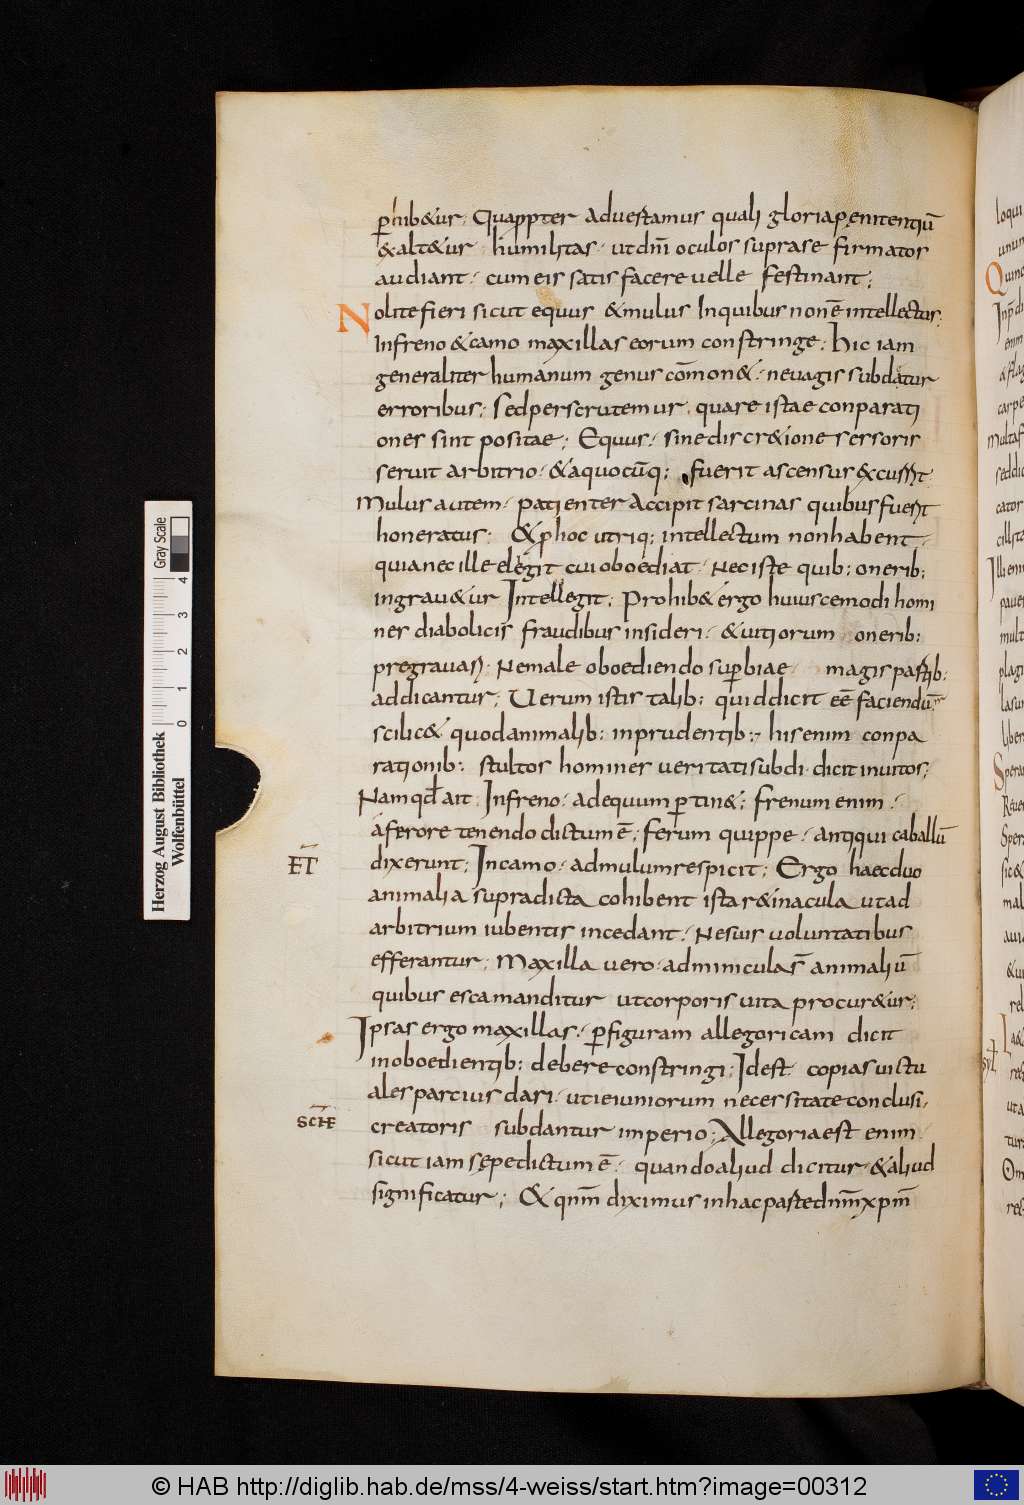 ꝑhib&ur; Quapꝓter aduertamus quali gloria pęnitentiū
&alt&ur humilitas · ut dn̄i oculos supra se firmatos
audiant · cum eis satisfacere uelle festinant;
Nolite fieri sicut equus & mulus In quibus non ē intellectus;
In freno & camo maxillas eorum constringe; hic iam
generaliter humanum genus cōmon& · ne uagis subdatur
erroribus; Sed perscrutemur quare istae conparati
ones sint positae; Equus · sine discr&ione sessoris
seruit arbitrio · & a quocūq; fuerit ascensus excurrit
Mulus autem · patienter accipit sarcinas quibus fuerit
honeratus; & ꝑ hoc utriq; intellectum non habent ·
quia nec ille elegit cui oboediat · Nec iste quib; onerib;
ingrau&ur Intellegit; Prohib& ergo huiuscemodi homi
nes diabolicis fraudibus insideri · & uitiorum onerib;
pregrauari; Ne male oboediendo suꝑbiae magis partib;
addicantur; Uerum istis talib; quid dicit eē faciendū
scilic& quod animalib; inprudentib; his enim conpa
rationib; stultos homines ueritati subdi dicit inuitos;
Nam qđ ait; In freno · ad equum ꝑtin&; frenum enim ·
a ferore tenendo dictum ē; ferum quippe · antiqui caballū
ET
dixerunt; In camo · ad mulum respicit; Ergo haec duo
animalia supra dicta cohibent ista r&inacula ut ad
arbitrium iubentis incedant · Ne suis uoluntatibus
efferantur; Maxilla uero · adminicula s̄ animaliū
quibus esca manditur ut corporis uita procur&ur;
Ipsas ergo maxillas · ꝑ figuram allegoricam dicit
inoboedientib; debere constringi; Idest copias uictu
ales parcius dari · ut ieiuniorum necessitate conclusi ·
creatoris subdantur imperio; Allegoria est enim ·
sicut iam sępe dictum ē · quando aliud dicitur & aliud
significatur; & qnm̄ diximus in hac parte dnm̄ xpm̄
© HAB http://diglib.hab.de/mss/4-weiss/start.htm?image=00312
Herzog August Bibliothek
Wolfenbüttel
0 1 2 3 4
Gray Scale